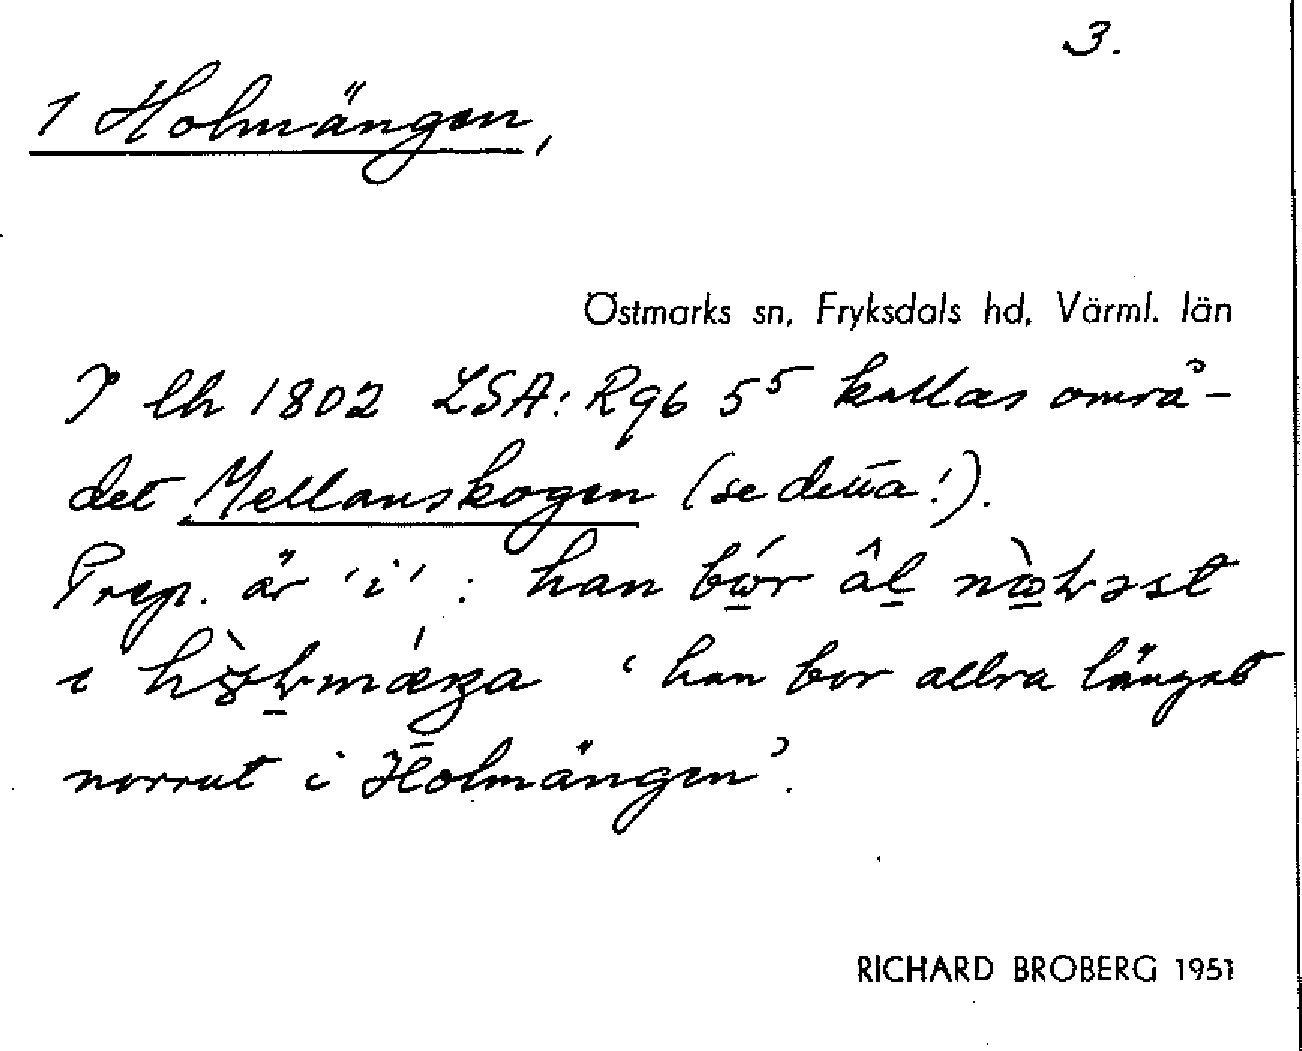 3.
1 Holmängen,
Östmarks sn, Fryksdals hd, Värml. län
I lh 1802 LSA: R96 5⁵ kallas områ-
det Mellanskogen (se detta!).
Prep. är 'i' : han
i 'han bor allra längst
norrut i Holmängen'.
RICHARD BROBERG 1951